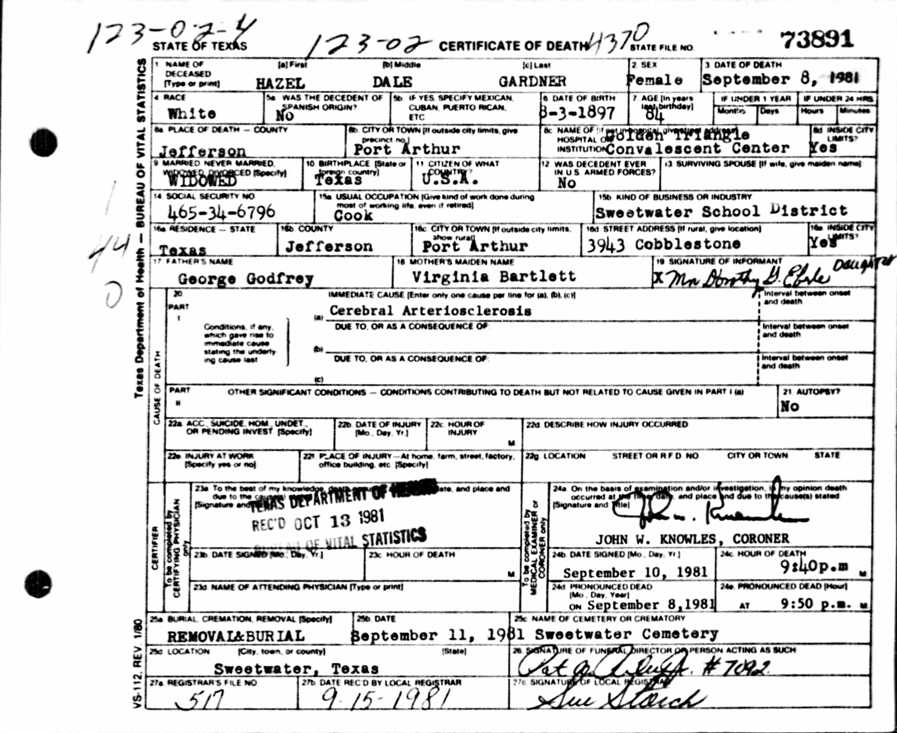 123-02-4
STATE OF TEXAS 123-02 CERTIFICATE OF DEATH 4370 STATE FILE NO. 73891
Texas Department of Health — BUREAU OF VITAL STATISTICS
1 NAME OF DECEASED [Type or print] [a] First [b] Middle [c] Last 2 SEX 3 DATE OF DEATH
HAZEL DALE GARDNER Female September 8, 1981
4 RACE 5a WAS THE DECEDENT OF SPANISH ORIGIN? 5b IF YES, SPECIFY MEXICAN, CUBAN, PUERTO RICAN, ETC 6 DATE OF BIRTH 7 AGE [In years last birthday] IF UNDER 1 YEAR Months Days IF UNDER 24 HRS Hours Minutes
White No 8-3-1897 84
8a PLACE OF DEATH — COUNTY 8b CITY OR TOWN [If outside city limits, give precinct no.] 8c NAME OF HOSPITAL OR INSTITUTION 8d INSIDE CITY LIMITS?
Jefferson Port Arthur Golden Triangle Convalescent Center Yes
9 MARRIED, NEVER MARRIED, WIDOWED, DIVORCED [Specify] 10 BIRTHPLACE [State or foreign country] 11 CITIZEN OF WHAT COUNTRY? 12 WAS DECEDENT EVER IN U.S. ARMED FORCES? 13 SURVIVING SPOUSE [If wife, give maiden name]
WIDOWED Texas U.S.A. No
14 SOCIAL SECURITY NO 15a USUAL OCCUPATION [Give kind of work done during most of working life, even if retired] 15b KIND OF BUSINESS OR INDUSTRY
465-34-6796 Cook Sweetwater School District
16a RESIDENCE — STATE 16b COUNTY 16c CITY OR TOWN [If outside city limits, show rural] 16d STREET ADDRESS [If rural, give location] 16e INSIDE CITY LIMITS?
Texas Jefferson Port Arthur 3943 Cobblestone Yes
17 FATHER'S NAME 18 MOTHER'S MAIDEN NAME 19 SIGNATURE OF INFORMANT
George Godfrey Virginia Bartlett X Mrs Dorothy G. Eberle Daughter
CAUSE OF DEATH
20 PART I IMMEDIATE CAUSE [Enter only one cause per line for (a), (b), (c)] Interval between onset and death
(a) Cerebral Arteriosclerosis
Conditions, if any, which gave rise to immediate cause stating the underlying cause last
DUE TO, OR AS A CONSEQUENCE OF: Interval between onset and death
(b)
DUE TO, OR AS A CONSEQUENCE OF: Interval between onset and death
(c)
PART II OTHER SIGNIFICANT CONDITIONS — CONDITIONS CONTRIBUTING TO DEATH BUT NOT RELATED TO CAUSE GIVEN IN PART I (a) 21 AUTOPSY?
No
22a ACC., SUICIDE, HOM., UNDET., OR PENDING INVEST. [Specify] 22b DATE OF INJURY [Mo., Day, Yr.] 22c HOUR OF INJURY M 22d DESCRIBE HOW INJURY OCCURRED
22e INJURY AT WORK [Specify yes or no] 22f PLACE OF INJURY—At home, farm, street, factory, office building, etc. [Specify] 22g LOCATION STREET OR R.F.D. NO CITY OR TOWN STATE
CERTIFIER
To be completed by CERTIFYING PHYSICIAN only
23a To the best of my knowledge, death date, and place and due to the [Signature and
TEXAS DEPARTMENT OF HEALTH
REC'D OCT 13 1981
BUREAU OF VITAL STATISTICS
To be completed by MEDICAL EXAMINER or CORONER only
24a On the basis of examination and/or investigation, in my opinion death occurred at the time, date, and place and due to the cause(s) stated [Signature and title]
John W. Knowles
JOHN W. KNOWLES, CORONER
23b DATE SIGNED [Mo., Day, Yr.] 23c HOUR OF DEATH M 24b DATE SIGNED [Mo., Day, Yr.] 24c HOUR OF DEATH
September 10, 1981 9:40p.m M
23d NAME OF ATTENDING PHYSICIAN [Type or print] 24d PRONOUNCED DEAD [Mo., Day, Year] 24e PRONOUNCED DEAD [Hour]
ON September 8,1981 AT 9:50 p.m. M
25a BURIAL, CREMATION, REMOVAL [Specify] 25b DATE 25c NAME OF CEMETERY OR CREMATORY
REMOVAL&BURIAL September 11, 1981 Sweetwater Cemetery
25d LOCATION [City, town, or county] [State] 26 SIGNATURE OF FUNERAL DIRECTOR OR PERSON ACTING AS SUCH
Sweetwater, Texas # 7092
27a REGISTRAR'S FILE NO 27b DATE REC'D BY LOCAL REGISTRAR 27c SIGNATURE OF LOCAL REGISTRAR
517 9-15-1981 Sue Starch
VS-112, REV. 1/80